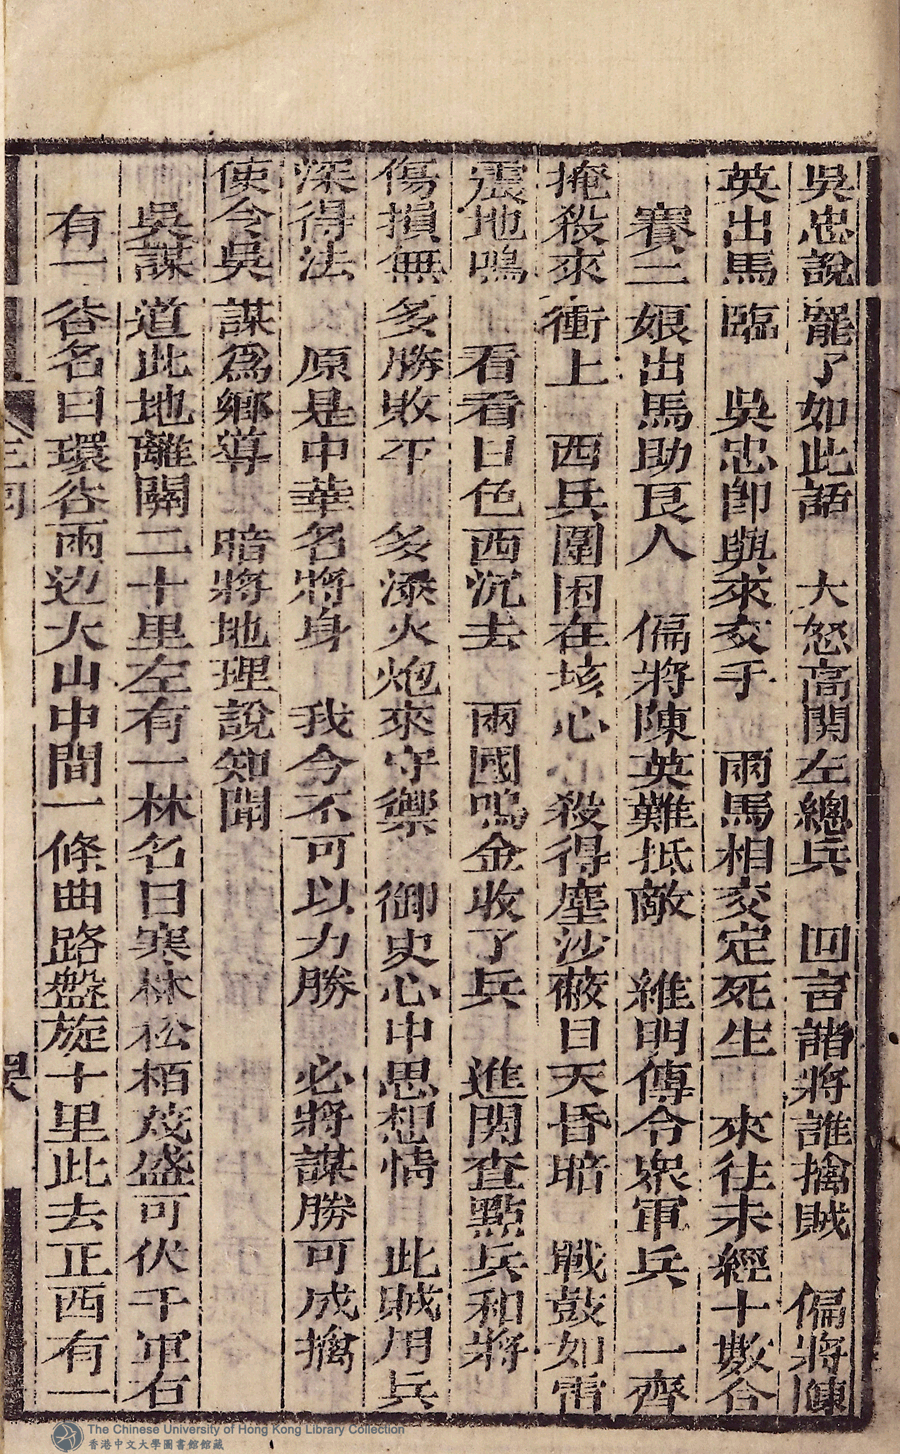 吳忠說罷了如此語　大怒高関左總兵　回言諸將誰擒賊　偏將陳
英出馬臨　吳忠卽與來交手　兩馬相交定死生　來往未經十數合
賽三娘出馬助良人　偏將陳英難抵敵　維明傳令衆軍兵　一齊
掩殺來衝上　西兵圍困在垓心　殺得塵沙蔽日天昏暗　戰鼓如雷
震地鳴　看看日色西沉去　兩國鳴金收了兵　進関查點兵和將
傷損無多勝敗平　多添火炮來守禦　御史心中思想情　此賊用兵
深得法　原是中華名將身　我今不可以力勝　必將謀勝可成擒
使令吳謀爲鄉導　暗將地理說知聞
吳謀道此地離關二十里左有一林名曰寒林松栢茂盛可伏千軍右
有一谷名曰環谷兩边大山中間一條曲路盤旋十里此去正西有一
The Chinese University of Hong Kong Library Collection
香港中文大學圖書館館藏